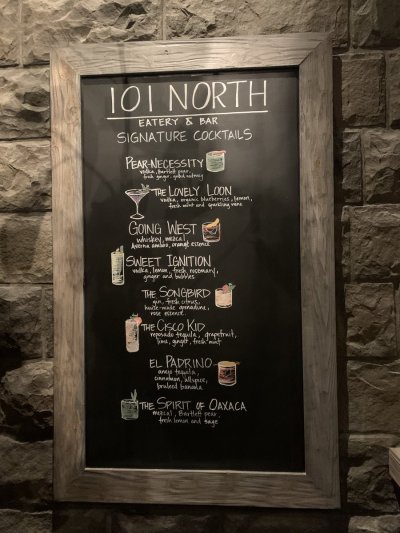 101 NORTH
EATERY & BAR
SIGNATURE COCKTAILS
PEAR-NECESSITY
vodka, Bartlett pear,
fresh ginger, grated nutmeg
THE LOVELY LOON
vodka, organic blueberries, lemon,
fresh mint and sparkling wine
GOING WEST
whiskey, mezcal
Averna amaro, orange essence
SWEET IGNITION
vodka, lemon, fresh rosemary,
ginger and bubbles
THE SONGBIRD
gin, fresh citrus,
house-made grenadine,
rose essence
THE CISCO KID
reposado tequila, grapefruit,
lime, ginger, fresh mint
EL PADRINO
anejo tequila,
cinnamon, allspice,
bruleed banana
THE SPIRIT OF OAXACA
mezcal, Bartlett pear,
fresh lemon and sage